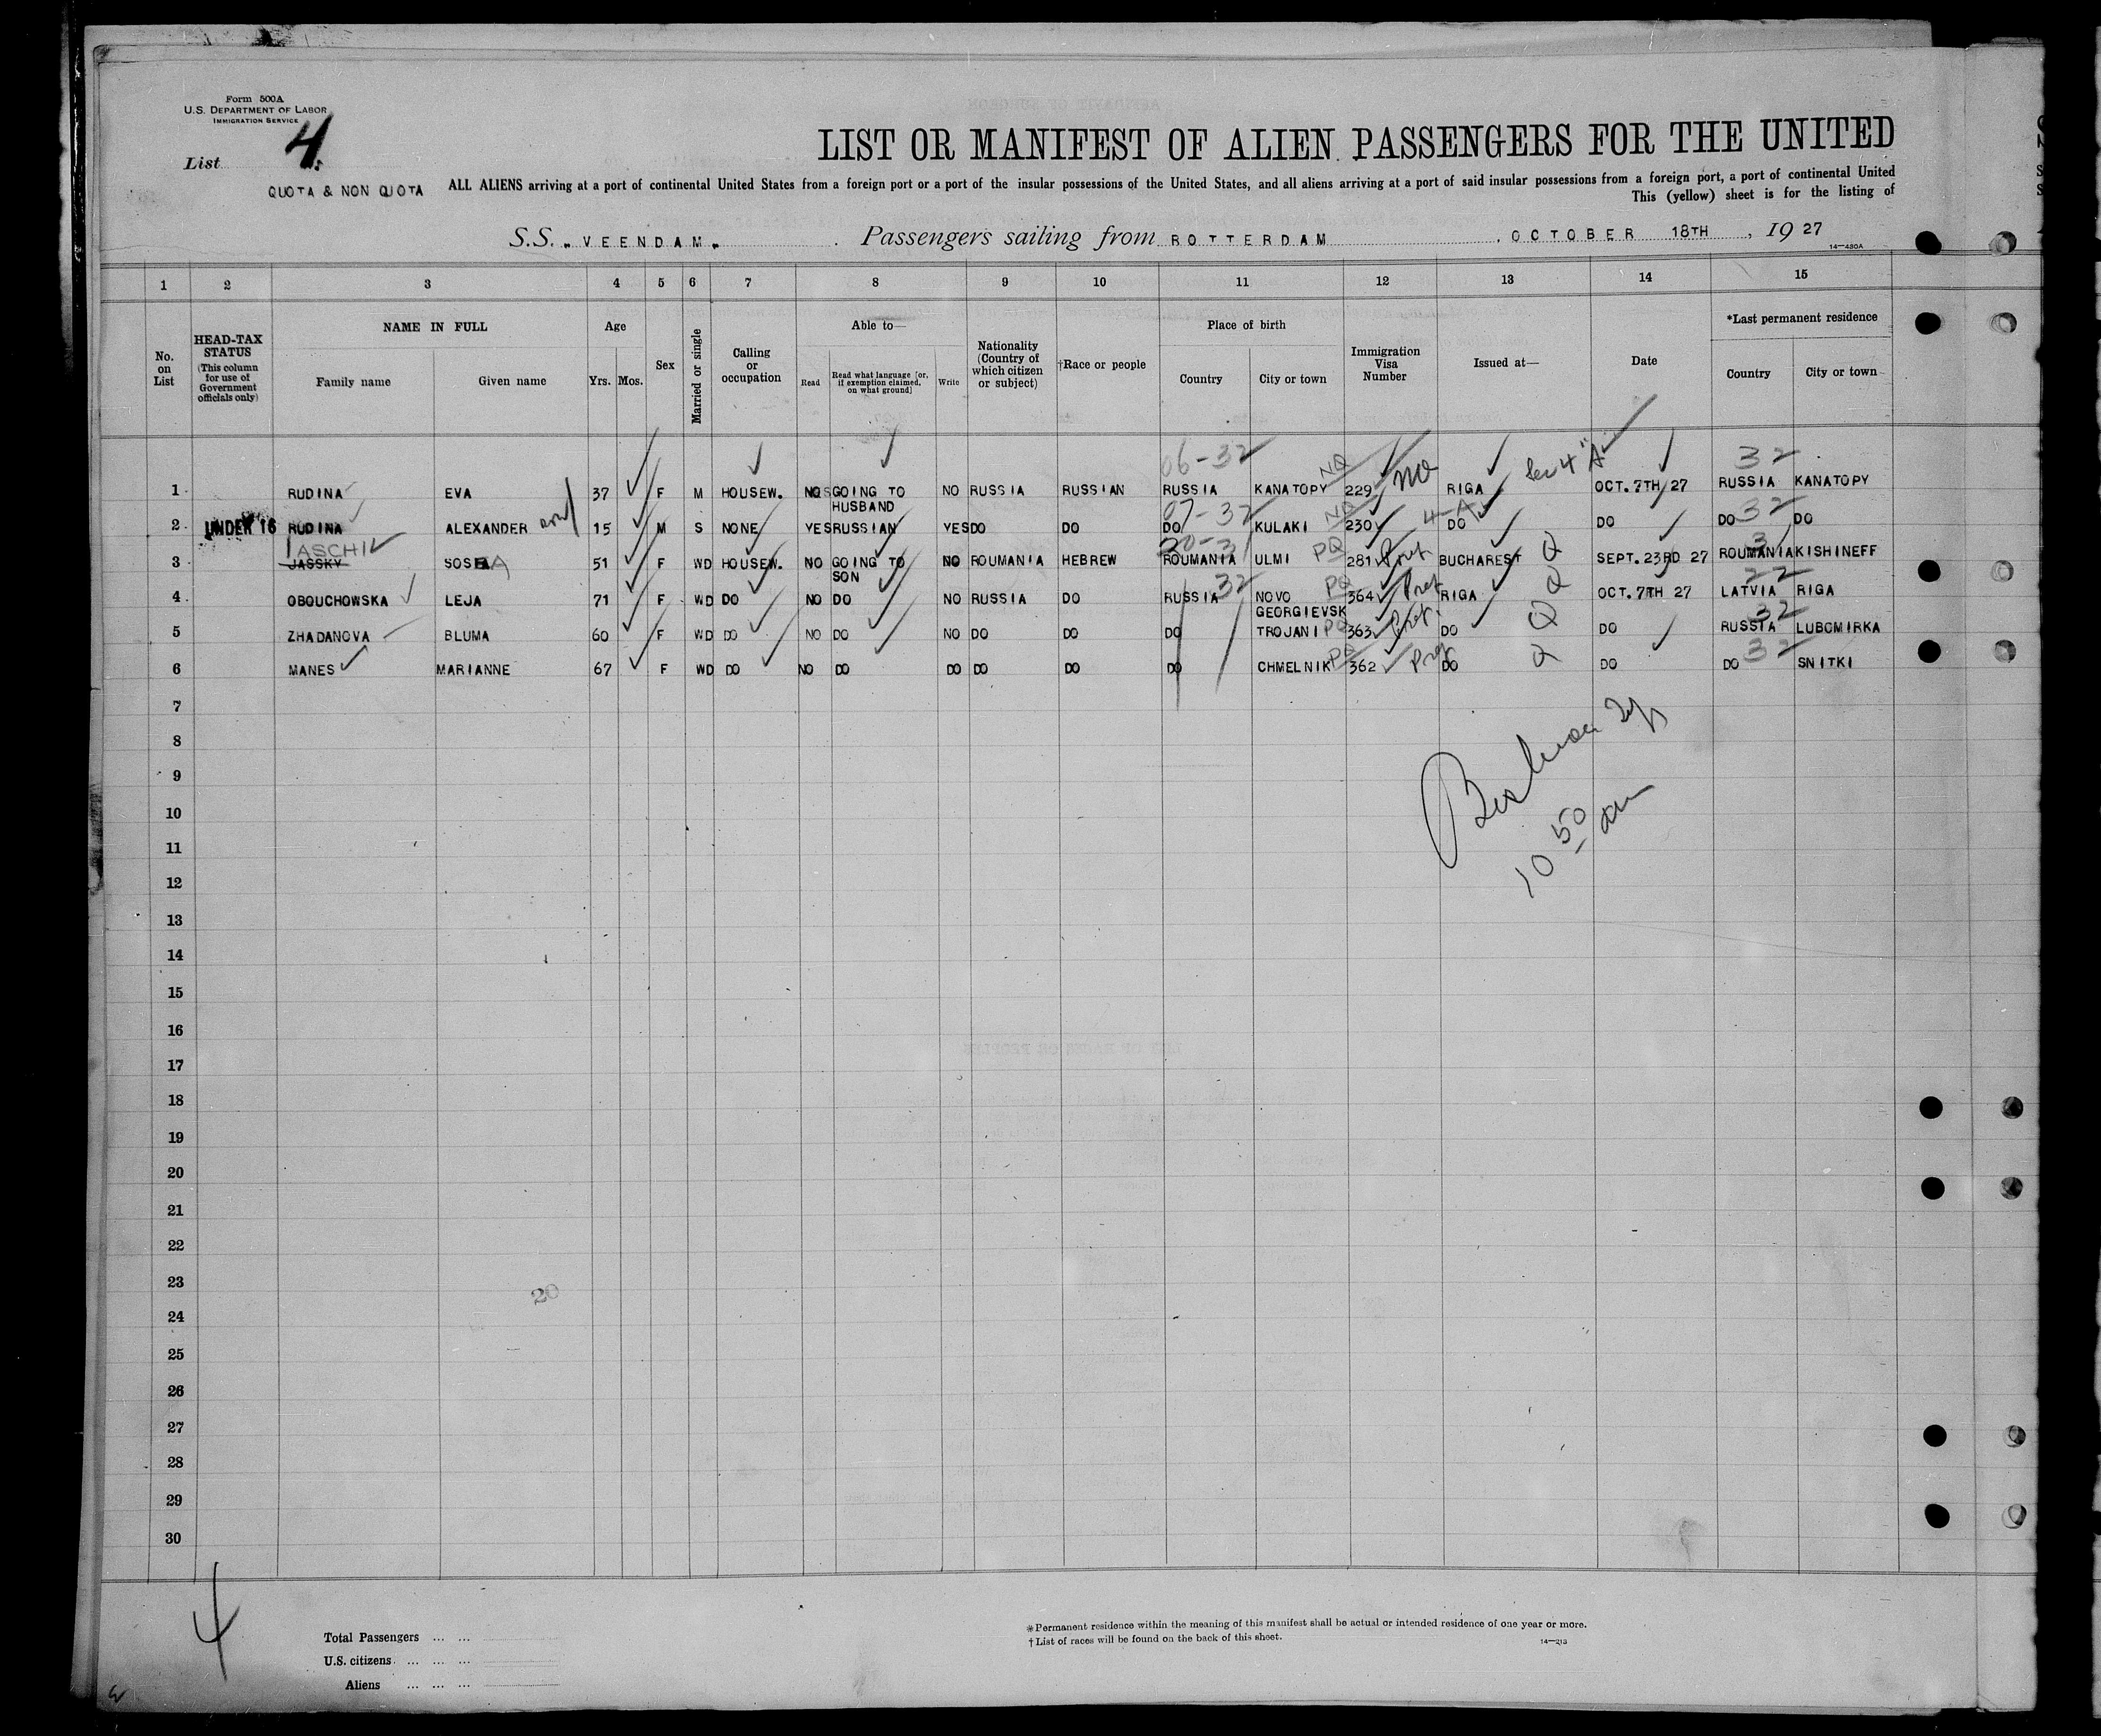 Form 500A
U.S. DEPARTMENT OF LABOR
IMMIGRATION SERVICE
List 4.
LIST OR MANIFEST OF ALIEN PASSENGERS FOR THE UNITED
QUOTA & NON QUOTA
ALL ALIENS arriving at a port of continental United States from a foreign port or a port of the insular possessions of the United States, and all aliens arriving at a port of said insular possessions from a foreign port, a port of continental United
This (yellow) sheet is for the listing of
S.S. „VEENDAM„ Passengers sailing from ROTTERDAM, OCTOBER 18TH, 19 27
14—430A
1 2 3 4 5 6 7 8 9 10 11 12 13 14 15
No. on List
HEAD-TAX STATUS (This column for use of Government officials only)
NAME IN FULL
Family name Given name
Age
Yrs. Mos.
Sex
Married or single
Calling or occupation
Able to—
Read
Read what language [or, if exemption claimed, on what ground]
Write
Nationality (Country of which citizen or subject)
†Race or people
Place of birth
Country City or town
Immigration Visa Number
Issued at—
Date
*Last permanent residence
Country City or town
06-32 NQ NQ Sec 4 "A" 32
1 RUDINA EVA 37 F M HOUSEW. NO GOING TO HUSBAND NO RUSSIA RUSSIAN RUSSIA KANATOPY 229 RIGA OCT. 7TH 27 RUSSIA KANATOPY
07-32 NQ 4-A 32
2 UNDER 16 RUDINA ALEXANDER 15 M S NONE YES RUSSIAN YES DO DO DO KULAKI 230 DO DO DO DO
IASCHI
3 JASSKY SOSEA 51 F WD HOUSEW. NO GOING TO SON NO ROUMANIA HEBREW ROUMANIA ULMI PQ 281 Pref BUCHAREST Q SEPT. 23RD 27 ROUMANIA KISHINEFF
32 22
4 OBOUCHOWSKA LEJA 71 F WD DO NO DO NO RUSSIA DO RUSSIA NOVO GEORGIEVSK PQ 364 Pref RIGA Q OCT. 7TH 27 LATVIA RIGA
32
5 ZHADANOVA BLUMA 60 F WD DO NO DO NO DO DO DO TROJANI PQ 363 Pref. DO Q DO RUSSIA LUBOMIRKA
6 MANES MARIANNE 67 F WD DO NO DO DO DO DO DO CHMELNIK PQ 362 Pref DO Q DO DO 32 SNITKI
7
8
9
10
10 50 am
11
12
13
14
15
16
17
18
19
20
21
22
23
20
24
25
26
27
28
29
30
4
Total Passengers ... ...
U.S. citizens ... ... ...
Aliens ... ... ...
*Permanent residence within the meaning of this manifest shall be actual or intended residence of one year or more.
†List of races will be found on the back of this sheet.
14—213